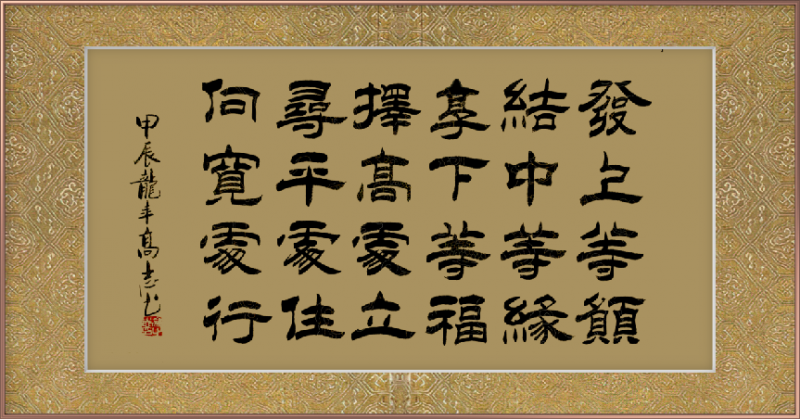 發上等願
結中等緣
享下等福
擇高處立
尋平處住
向寬處行
甲辰龍年高志书